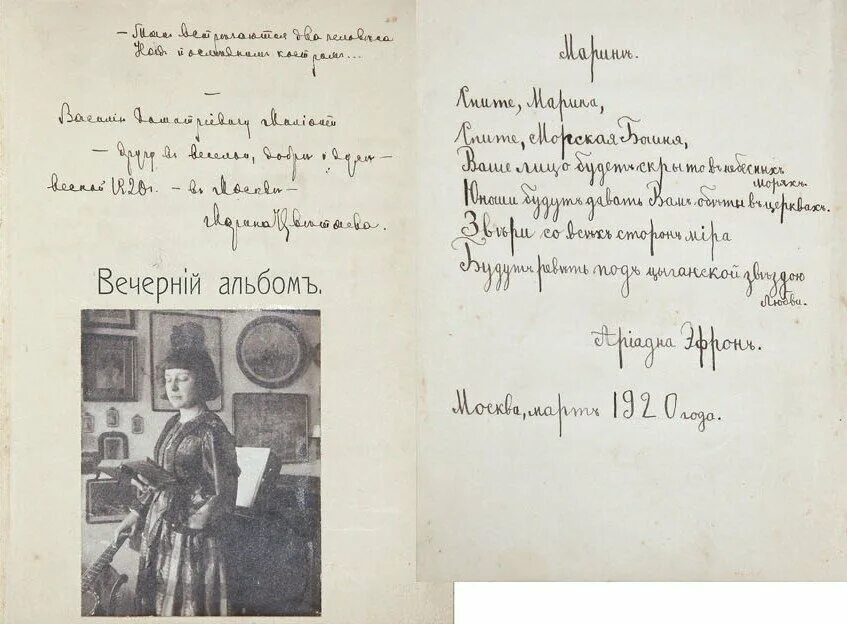 — Так встречаются два человека
Над последним костром...
Василiю Дмитрiевичу Милiоти
— другу въ
весной 1920г. — въ Москвѣ —
Марина Цвѣтаева.
Вечернiй альбомъ.
Маринѣ.
Спите, Марина,
Спите, Морская Богиня,
Ваше лицо будетъ скрыто въ небесныхъ
моряхъ.
Юноши будутъ давать Вамъ обѣты въ церквахъ.
Звѣри со всѣхъ сторонъ мiра
Будутъ ревѣть подъ цыганской звѣздою
Любви.
Арiадна Эфронъ.
Москва, мартъ 1920 года.